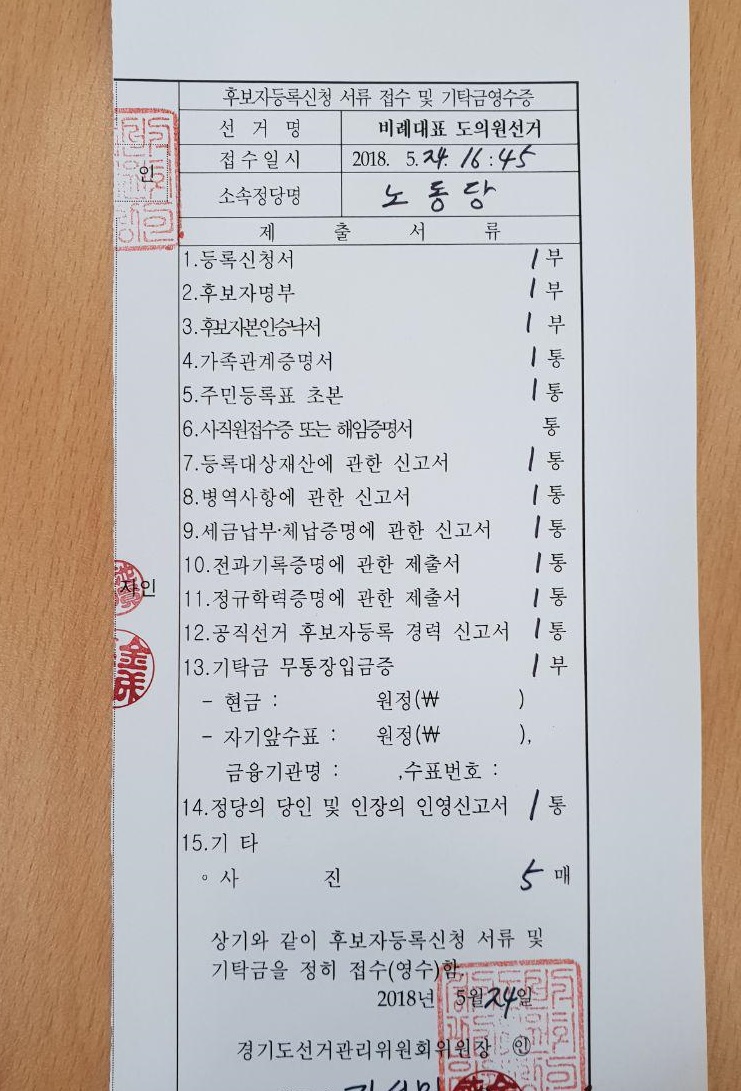 후보자등록신청 서류 접수 및 기탁금영수증
선 거 명 비례대표 도의원선거
접수일시 2018. 5. 24. 16:45
소속정당명 노동당
제 출 서 류
1.등록신청서 1 부
2.후보자명부 1 부
3.후보자본인승낙서 1 부
4.가족관계증명서 1 통
5.주민등록표 초본 1 통
6.사직원접수증 또는 해임증명서 통
7.등록대상재산에 관한 신고서 1 통
8.병역사항에 관한 신고서 1 통
9.세금납부·체납증명에 관한 신고서 1 통
10.전과기록증명에 관한 제출서 1 통
11.정규학력증명에 관한 제출서 1 통
12.공직선거 후보자등록 경력 신고서 1 통
13.기탁금 무통장입금증 1 부
- 현금 : 원정(₩ )
- 자기앞수표 : 원정(₩ ),
금융기관명 : ,수표번호 :
14.정당의 당인 및 인장의 인영신고서 1 통
15.기 타
◦ 사 진 5 매
상기와 같이 후보자등록신청 서류 및
기탁금을 정히 접수(영수)함.
2018년 5월 24일
경기도선거관리위원회위원장 ㊞
인
자인